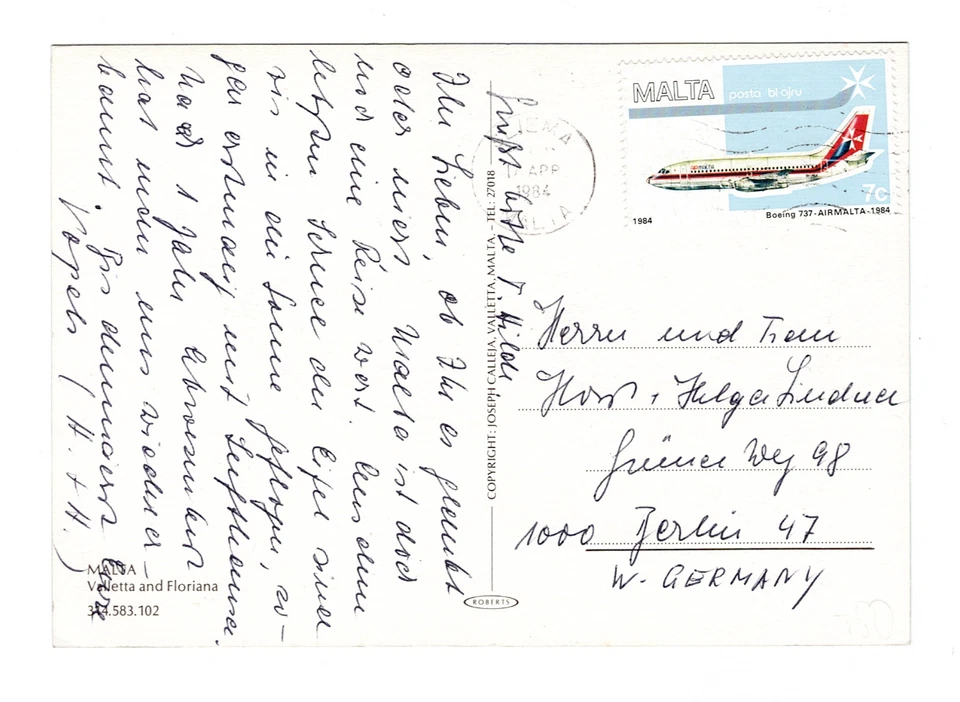 Ihr Lieben, ob Ihr es glaubt
oder nicht, Malta ist doch
und eine Reise wert. Aus dem
letzten Schnee der Eifel sind
wir in die Sonne geflogen, so-
gar erstmalig mit Lufthansa.
Nach 1 Jahr Abwesenheit
hat man uns wieder er-
kannt. Bis demnächst Eure
Vogels (H. + H.)
Grüßt bitte T. Hilde
COPYRIGHT: JOSEPH CALLEJA, VALLETTA, MALTA. - TEL: 27018
MALTA
Valletta and Floriana
314.583.102
ROBERTS
APR
1984
MALTA posta bl-ajru
AIRMALTA
7c
1984 Boeing 737-AIRMALTA-1984
Herrn und Frau
Horst + Helga Lindner
Grüner Weg 98
1000 Berlin 47
W-GERMANY